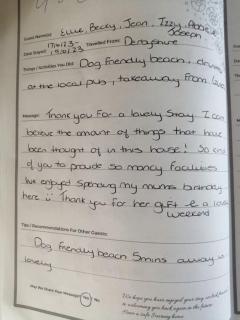 Guest Name(s): Ellie, Becky, Jean, Izzy, Abbie
Joseph
Date Stayed: Travelled From: Derbyshire
Things / Activities You Did: Dog friendly beach,
at the local pub, takeaway from
Message: Thank you for a lovely stay. I can
believe the amount of things that have
been thought of in this house! So kind
of you to provide so many facilities
We enjoyed spending my mums birthday
here :) Thank you for her gift & a
weekend
Tips / Recommendations For Other Guests:
Dog friendly beach 5mins away is
lovely
May We Share Your Message? Yes No
We hope you have enjoyed your stay, and look forward
to welcoming you back again in the future.
Have a safe journey home